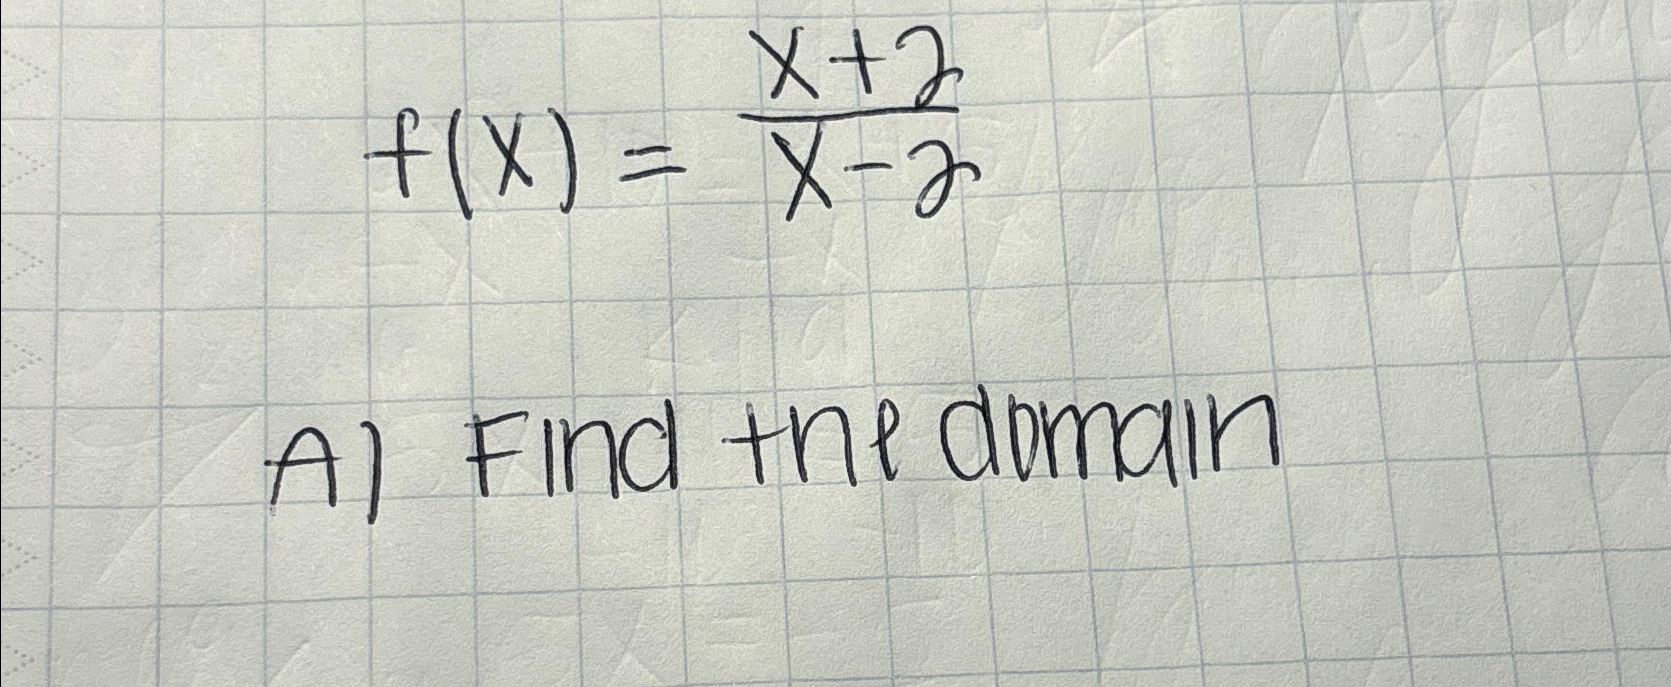 f(x) = x+2/x-2
A) Find the domain